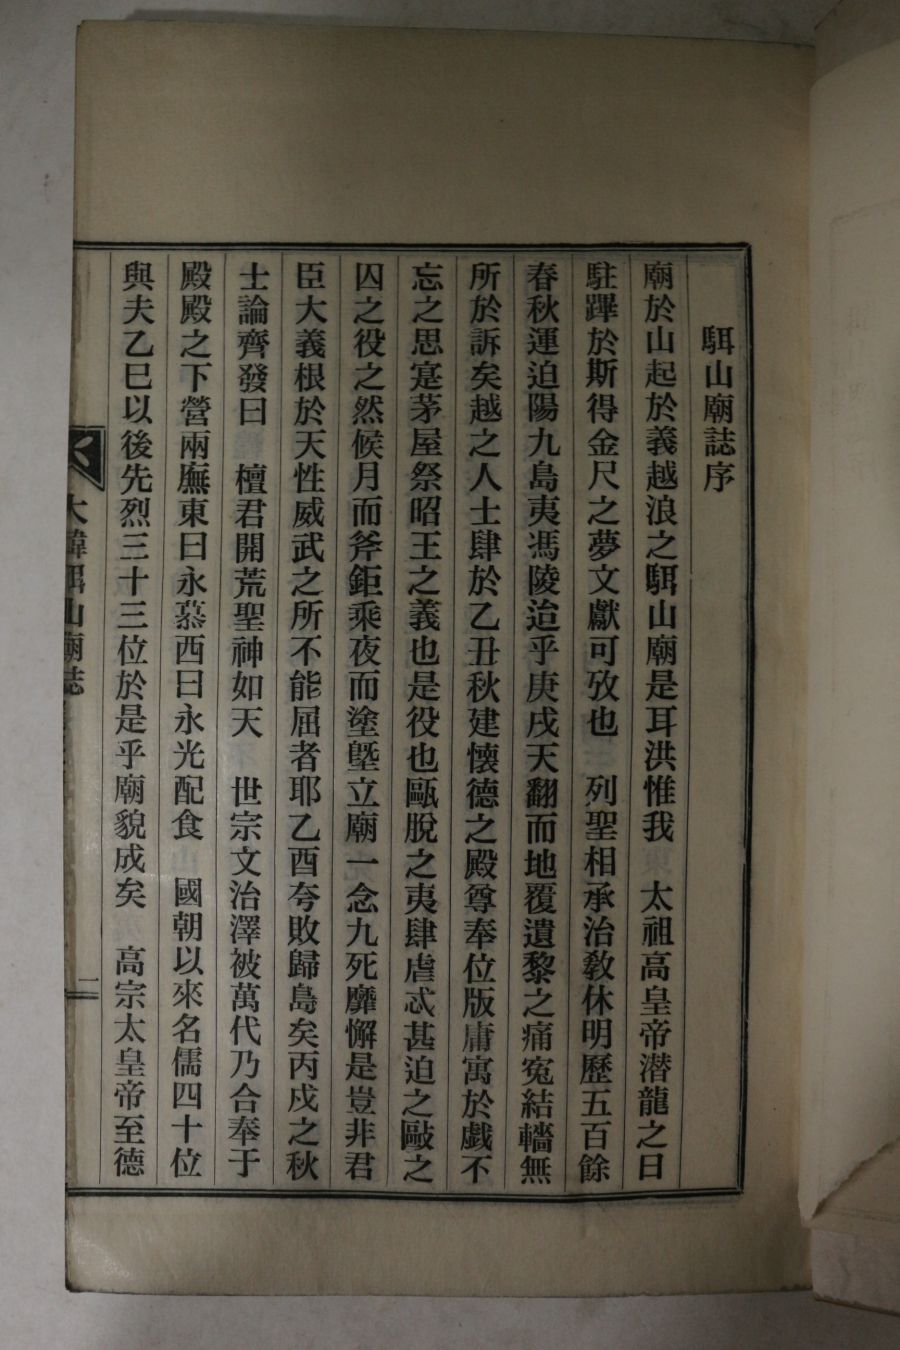 駬山廟誌序
廟於山起於義越浪之駬山廟是耳洪惟我　太祖高皇帝潜龍之日
駐蹕於斯得金尺之夢文獻可攷也　列聖相承治敎休明歷五百餘
春秋運迫陽九島夷馮陵迨乎庚戌天翻而地覆遺黎之痛寃結轖無
所於訴矣越之人士肆於乙丑秋建懷德之殿尊奉位版庸寓於戱不
忘之思寔茅屋祭昭王之義也是役也甌脫之夷肆虐忒甚迫之敺之
囚之役之然候月而斧鉅乘夜而塗墍立廟一念九死靡懈是豈非君
臣大義根於天性威武之所不能屈者耶乙酉夸敗歸島矣丙戍之秋
士論齊發曰　檀君開荒聖神如天　世宗文治澤被萬代乃合奉于
殿殿之下營兩廡東曰永慕西曰永光配食　國朝以來名儒四十位
與夫乙巳以後先烈三十三位於是乎廟貌成矣　高宗太皇帝至德
大韓駬山廟誌
一